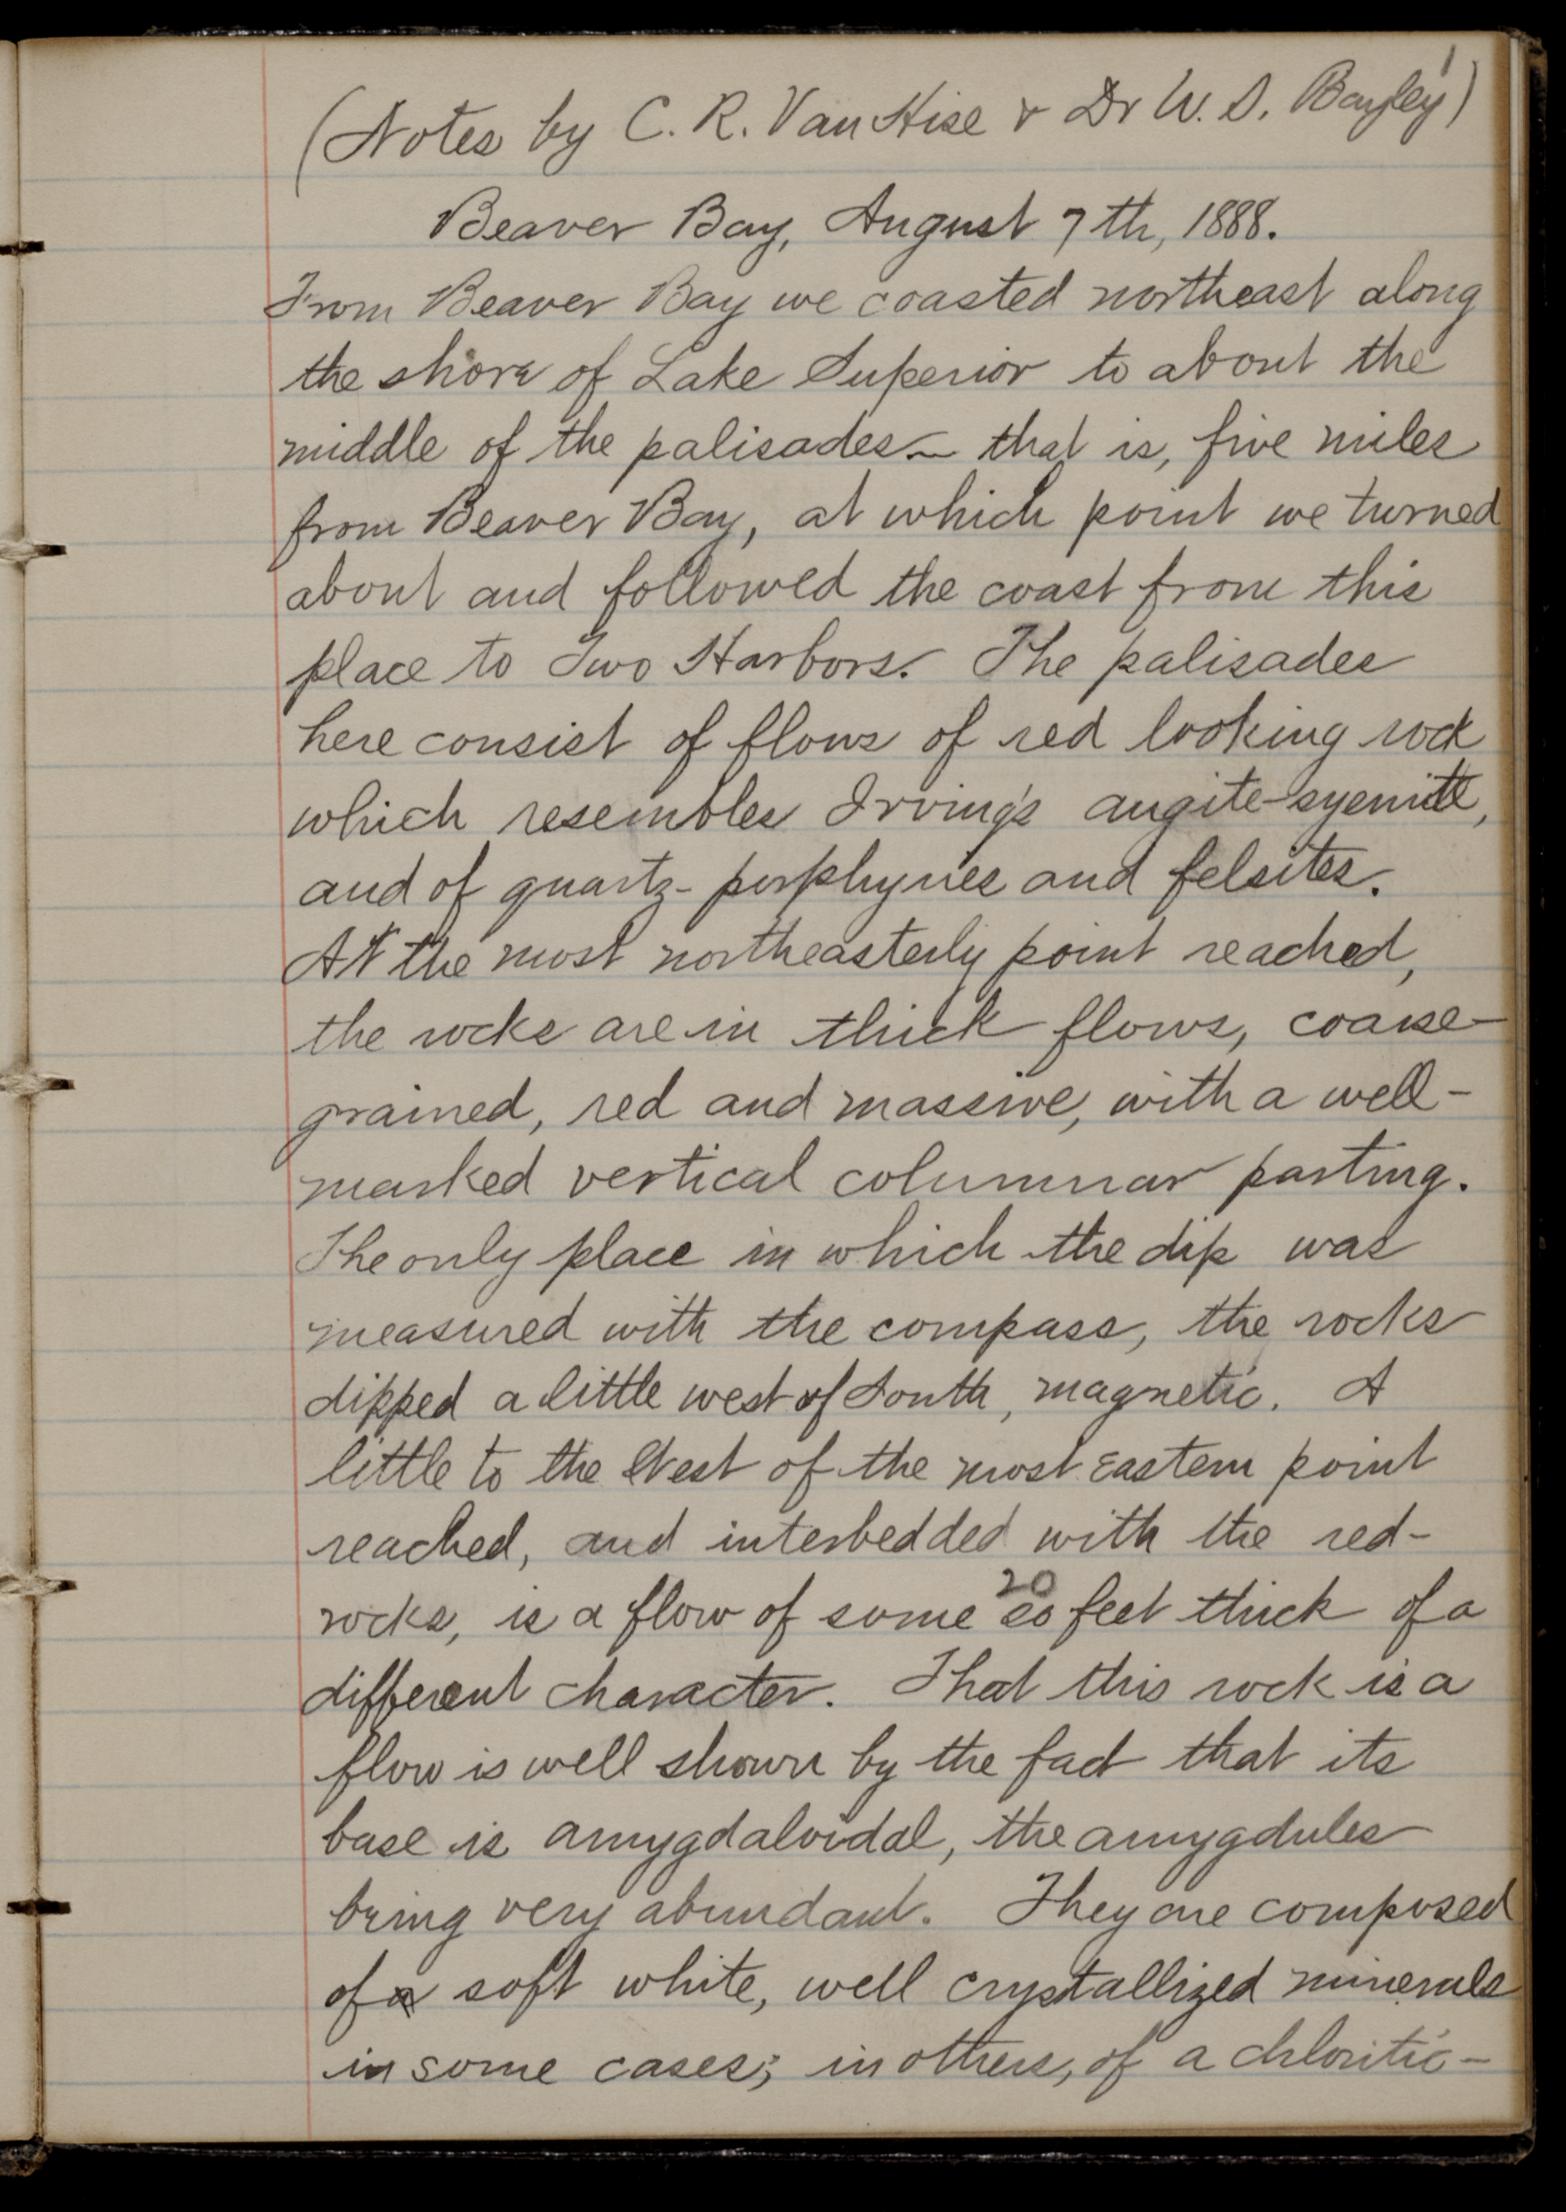 1
(Notes by C. R. Van Hise & Dr W. S. Bayley)
Beaver Bay, August 7th, 1888.
From Beaver Bay we coasted northeast along
the shore of Lake Superior to about the
middle of the palisades — that is, five miles
from Beaver Bay, at which point we turned
about and followed the coast from this
place to Two Harbors. The palisades
here consist of flows of red looking rock
which resembles Irving's augite-syenite,
and of quartz-porphyries and felsites.
At the most northeasterly point reached,
the rocks are in thick flows, coarse-
grained, red and massive, with a well-
marked vertical columnar parting.
The only place in which the dip was
measured with the compass, the rocks
dipped a little west of South, magnetic. A
little to the West of the most Eastern point
reached, and interbedded with the red-
rocks, is a flow of some 20 feet thick of a
different character. That this rock is a
flow is well shown by the fact that its
base is amygdaloidal, the amygdules
being very abundant. They are composed
of soft white, well crystallized minerals
in some cases; in others, of a chloritic-